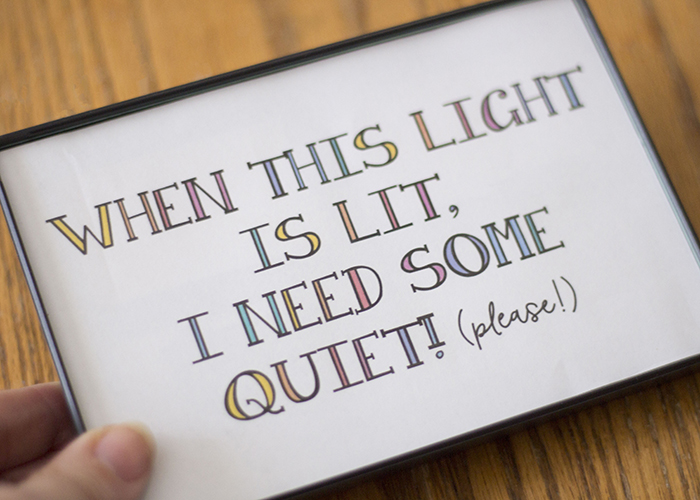 WHEN THIS LIGHT
IS LIT,
I NEED SOME
QUIET! (please!)